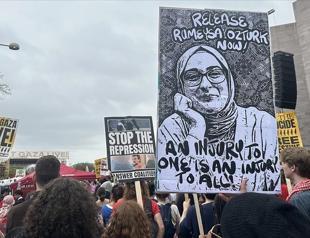 RELEASE
RUMEYSA OZTURK
NOW!
AN INJURY TO
ONE IS AN INJURY
TO ALL
STOP THE
REPRESSION
ANSWER COALITION
GAZA